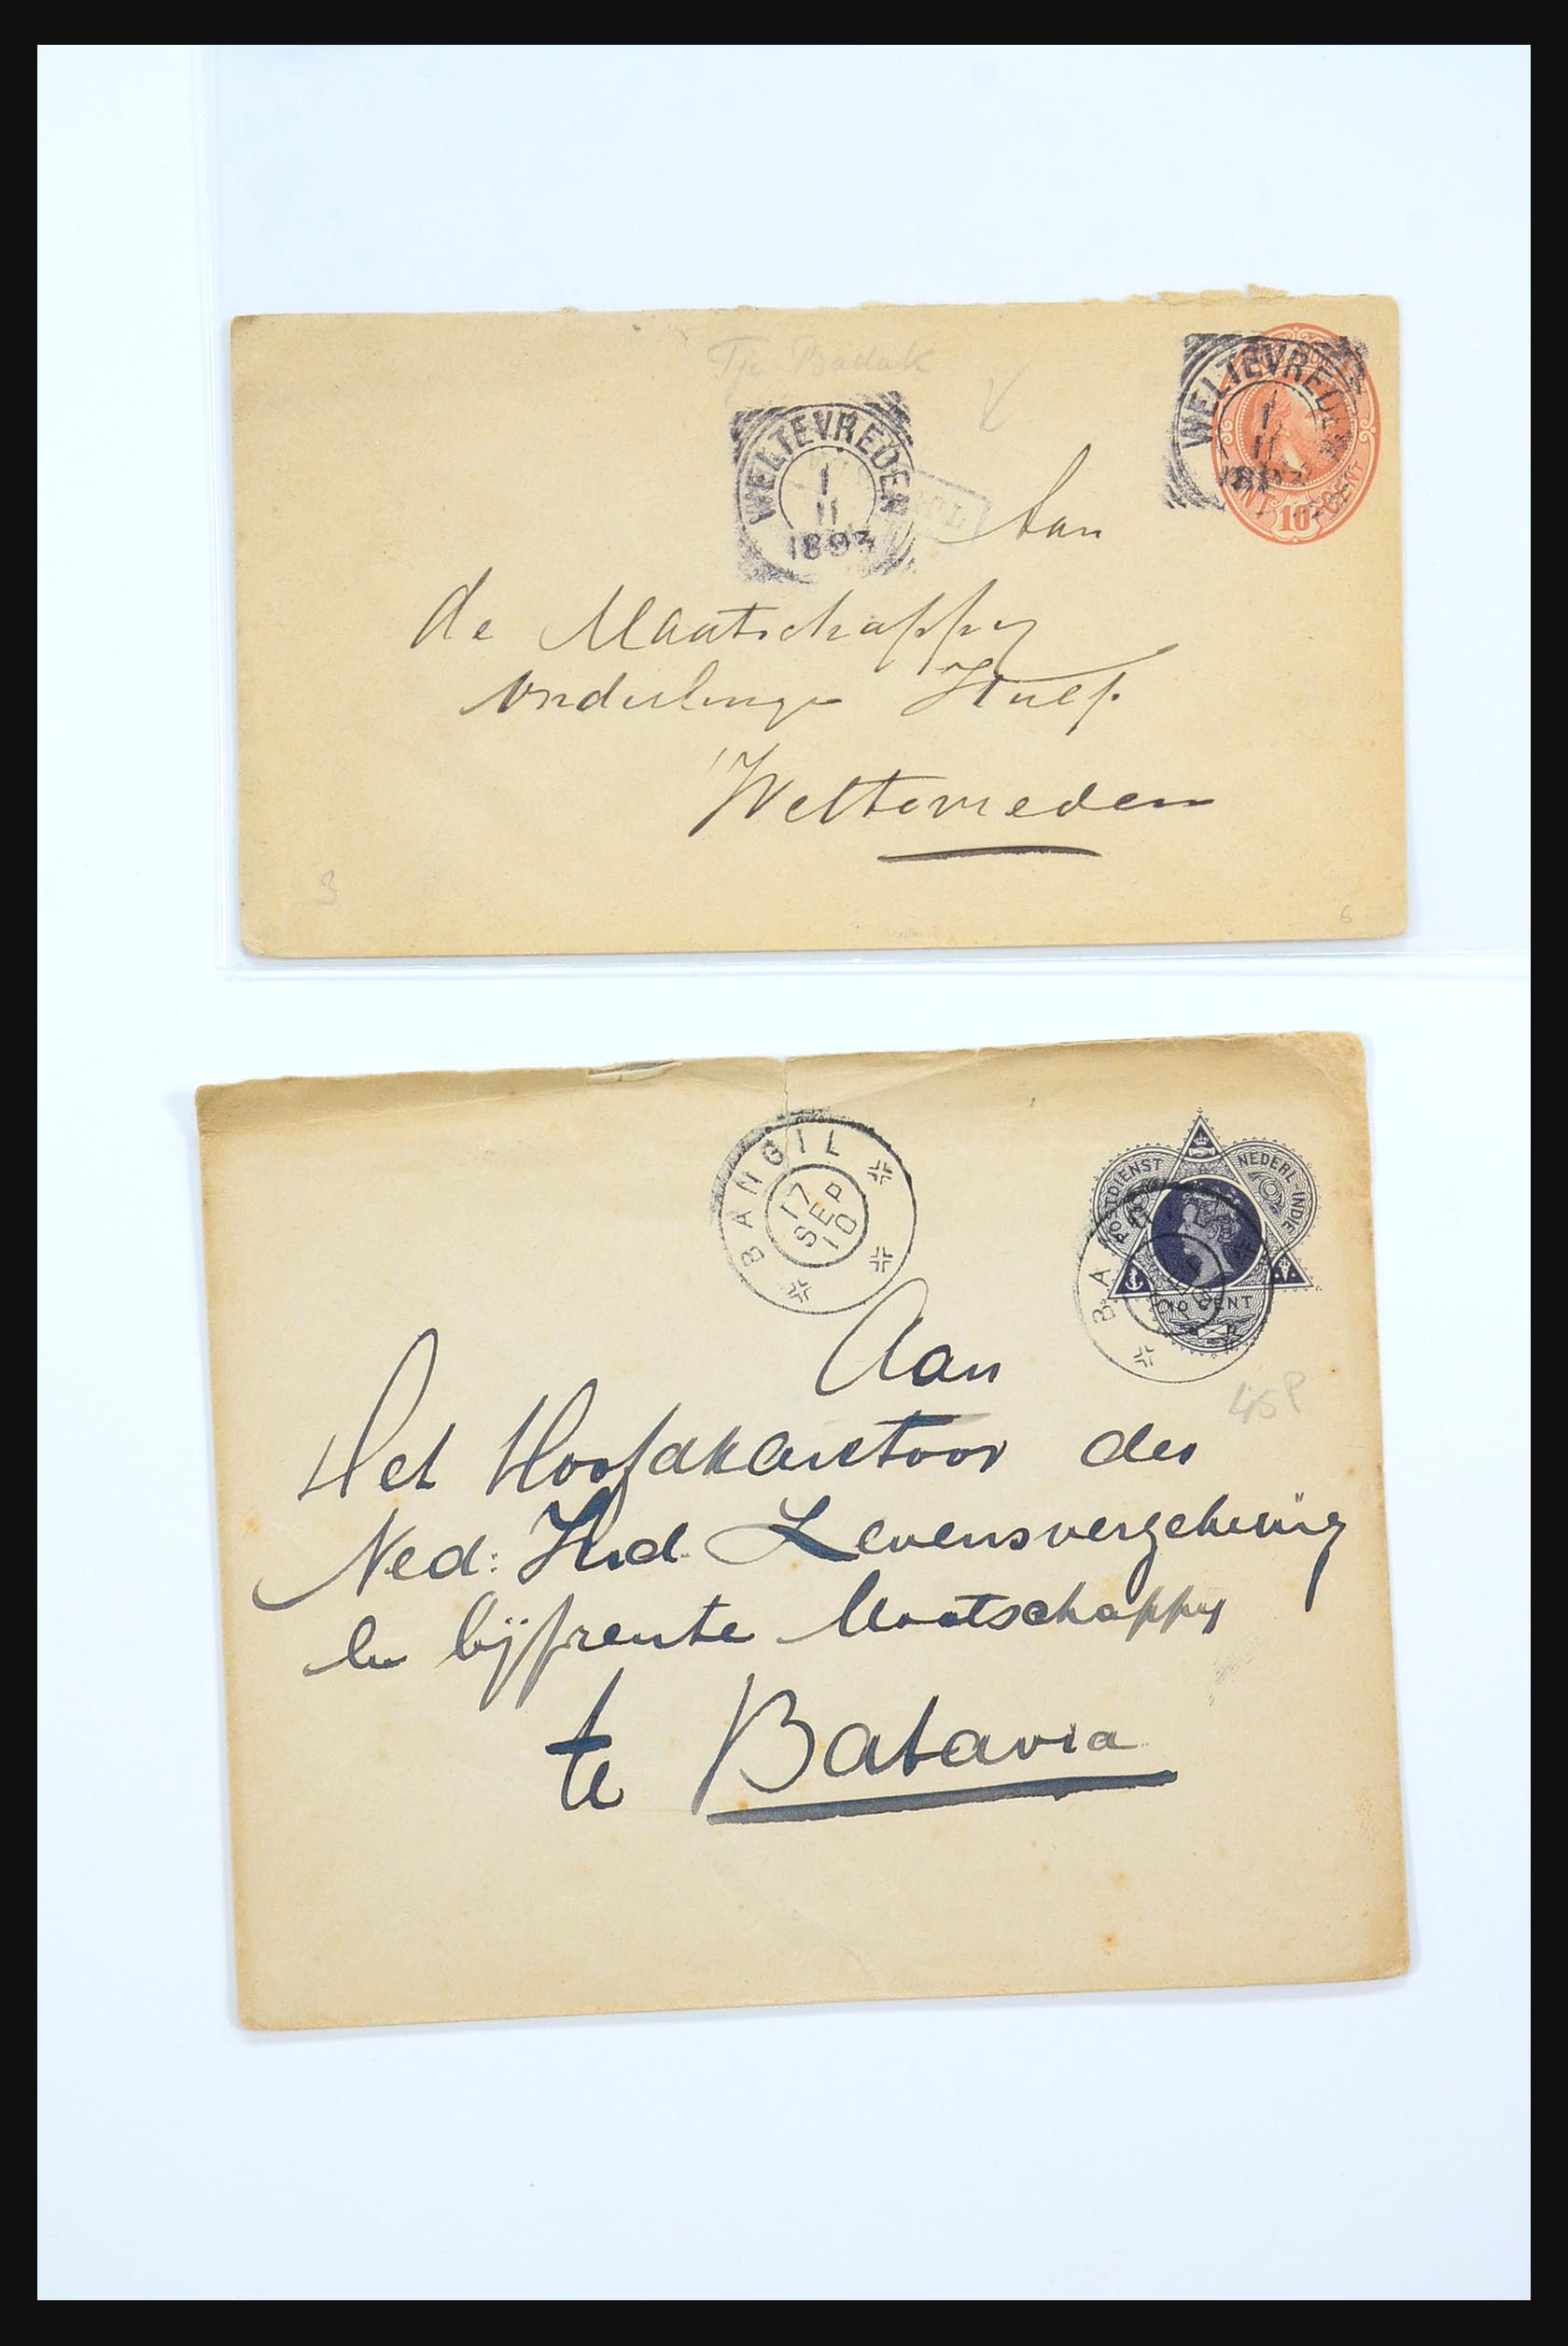 Tji Badak
WELTEVREDEN
1
11
1893
WELTEVREDEN
1
11
10 CENT
Aan
de Maatschappy
Onderlinge Hulp.
Weltevreden
3
6
BANGIL
17
SEP
10
POSTDIENST
NEDERL-INDIE
10 CENT
Aan
45P
Het Hoofdkantoor der
Ned: Ind. Levensverzekering
en lijfrente Maatschappy
te Batavia